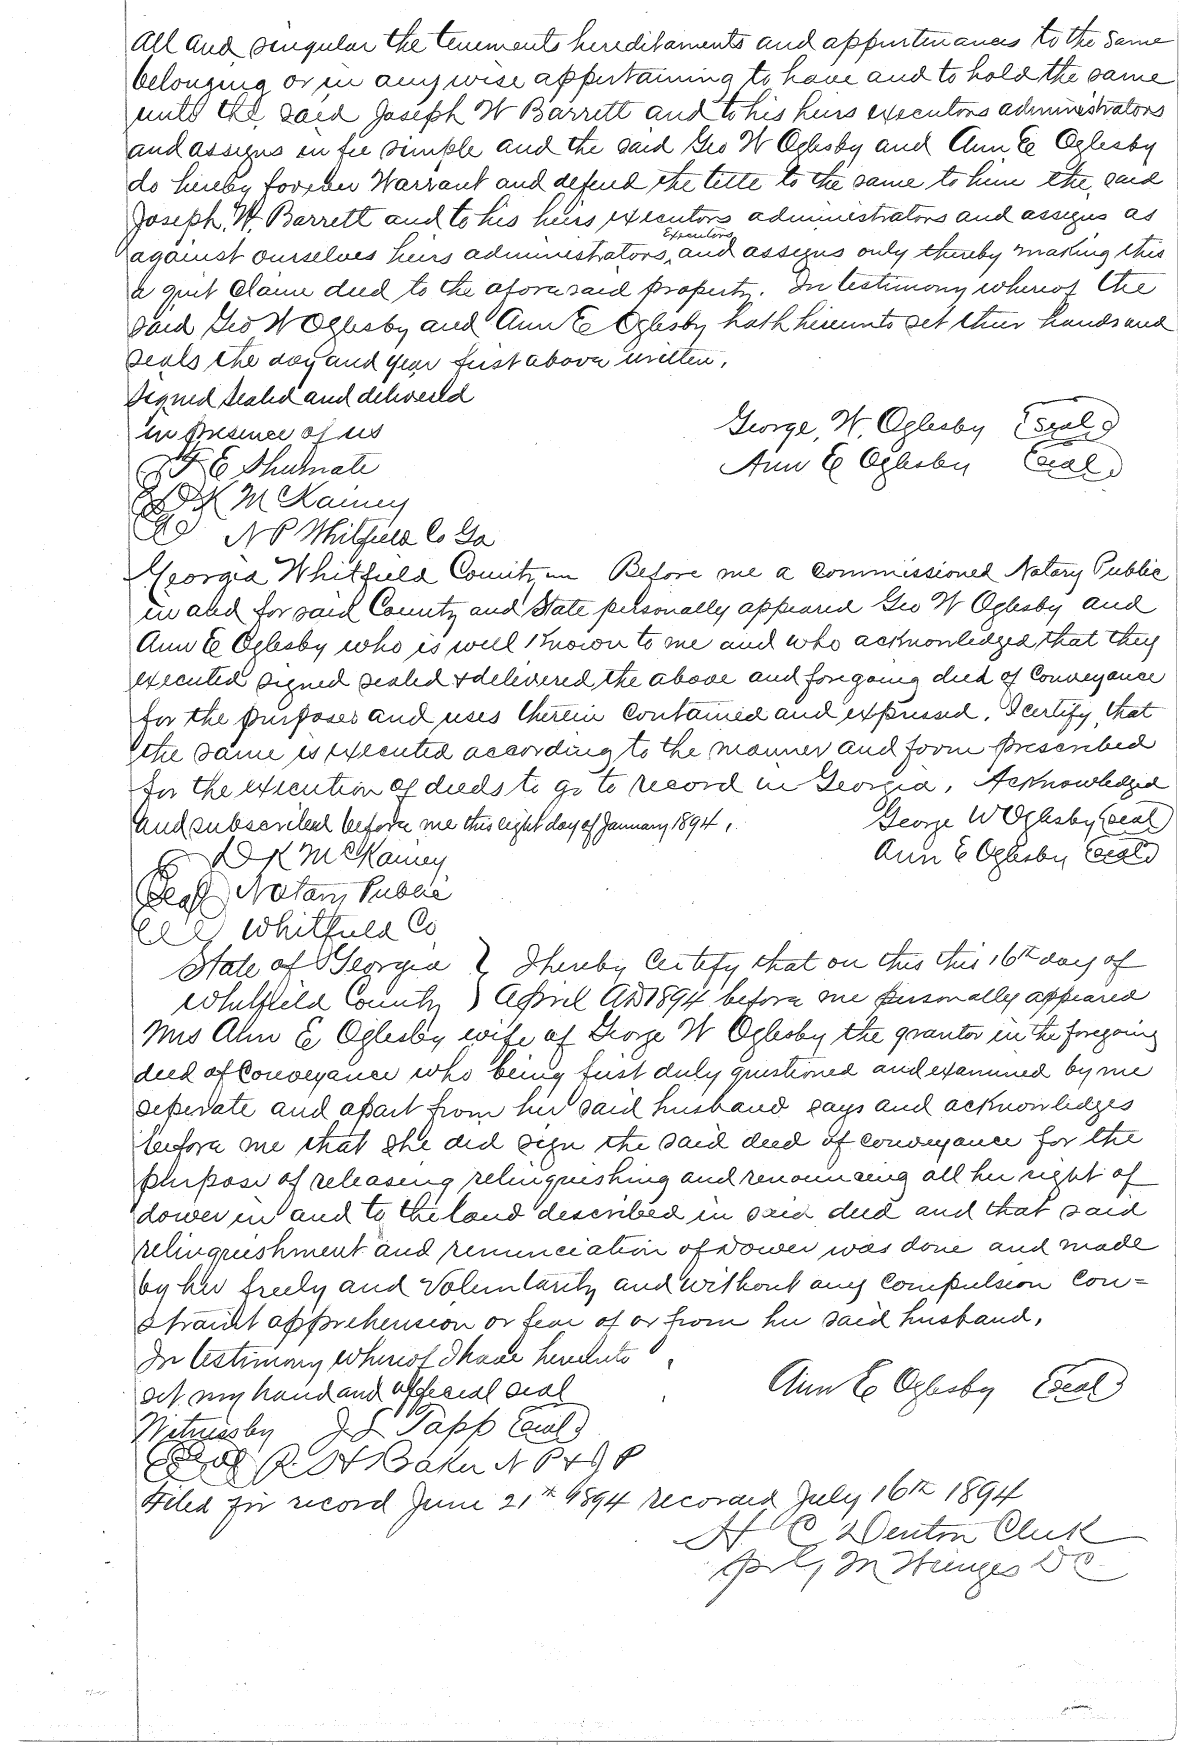 All and singular the tenements hereditaments and appurtenances to the same
belonging or in any wise appertaining to have and to hold the same
unto the said Joseph W Barrett and to his heirs executors administrators
and assigns in fee simple and the said Geo W Oglesby and Ann E Oglesby
do hereby forever Warrant and defend the title to the same to him the said
Joseph W. Barrett and to his heirs executors administrators and assigns as
against ourselves heirs administrators, Executors and assigns only thereby making this
a quit claim deed to the aforesaid property. In testimony whereof the
said Geo W Oglesby and Ann E Oglesby hath hereunto set their hands and
seals the day and year first above written.
Signed Sealed and delivered
in presence of us
George. W. Oglesby Seal
Ann E Oglesby Seal
E Shumate
D K McKamey
N P Whitfield Co Ga
Georgia Whitfield County Before me a commissioned Notary Public
in and for said County and State personally appeared Geo W Oglesby and
Ann E Oglesby who is well Known to me and who acknowledged that they
executed signed sealed & delivered the above and foregoing deed of Conveyance
for the purposes and uses therein contained and expressed. I certify that
the same is executed according to the manner and form prescribed
for the execution of deeds to go to record in Georgia. Acknowledged
and subscribed before me this eight day of January 1894.
George W Oglesby Seal
Ann E Oglesby Seal
D K McKamey
Seal Notary Public
Whitfield Co
State of Georgia } I hereby Certify that on this this 16th day of
Whitfield County } April AD 1894 before me personally appeared
Mrs Ann E Oglesby wife of George W Oglesby the grantor in the foregoing
deed of Conveyance who being first duly questioned and examined by me
seperate and apart from her said husband says and acknowledges
before me that she did sign the said deed of conveyance for the
purpose of releasing relinquishing and renouncing all her right of
dower in and to the land described in said deed and that said
relinquishment and renunciation of Dower was done and made
by her freely and Voluntarily and without any compulsion con=
straint apprehension or fear of or from her said husband.
In testimony whereof I have hereunto
set my hand and official seal
Ann E Oglesby Seal
Witness by J L Tapp Seal
Seal R. H Baker N P & J P
Filed for record June 21st 1894 recorded July 16th 1894
H C Denton Clerk
M D C